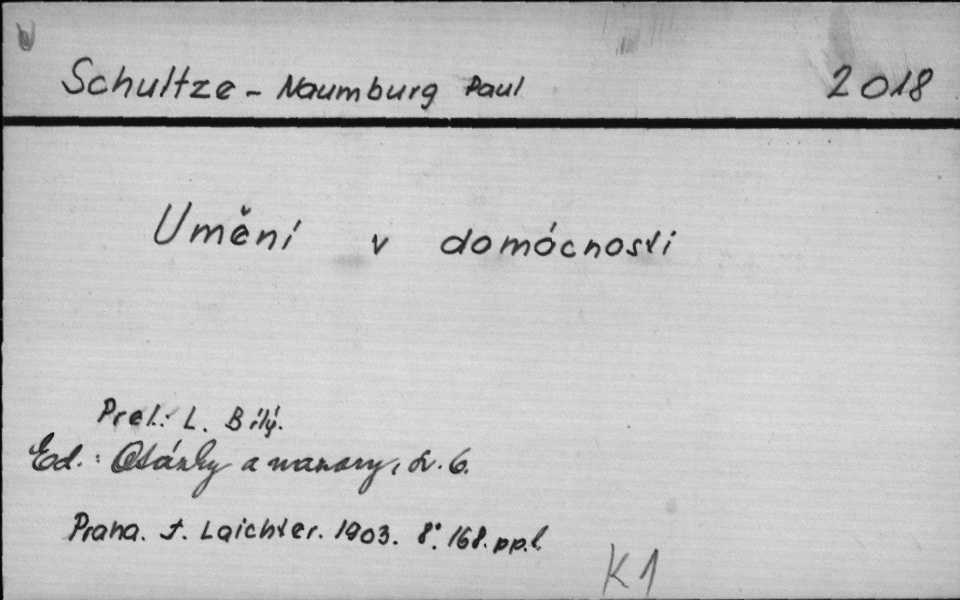 Schultze - Naumburg Paul 2018
Umění v domácnosti
Prel.: L. Bílý.
Ed.: Otázky a nazory, sv. 6.
Praha. J. Laichter. 1903. 8°. 168. pp. l.
K1